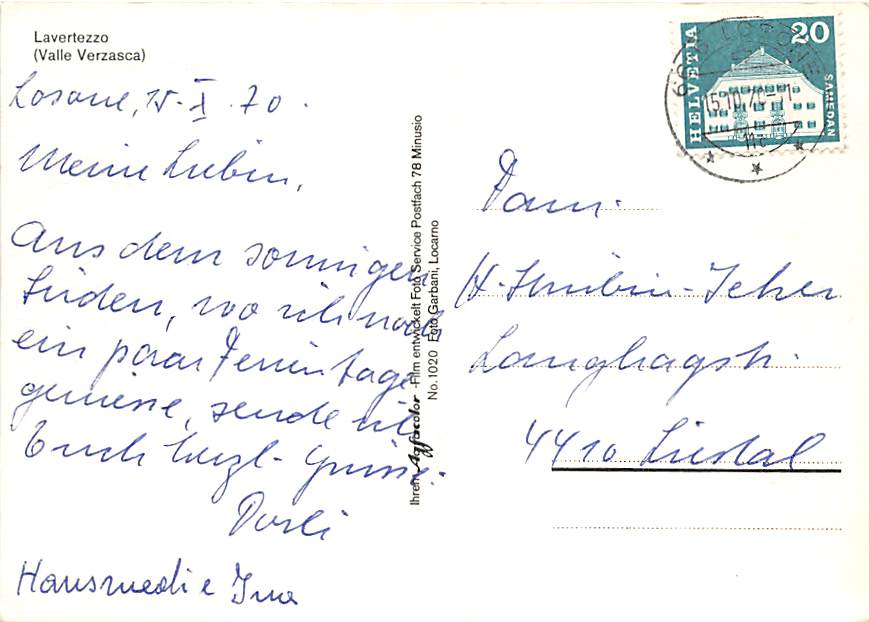 Lavertezzo
(Valle Verzasca)
Losone, 15. X. 70.
Meine Lieben,
Aus dem sonnigen
Süden, wo ich noch
ein paar Ferientage
geniesse, sende ich
Euch herzl. Grüsse.
Hansruedi e
Ihrem Agfacolor-Film entwickelt Foto Service Postfach 78 Minusio
No. 1020 Foto Garbani, Locarno
HELVETIA
20
SAMEDAN
6616 LOSONE
15.10.70-11
Fam.
Langhagstr.
4410 Liestal